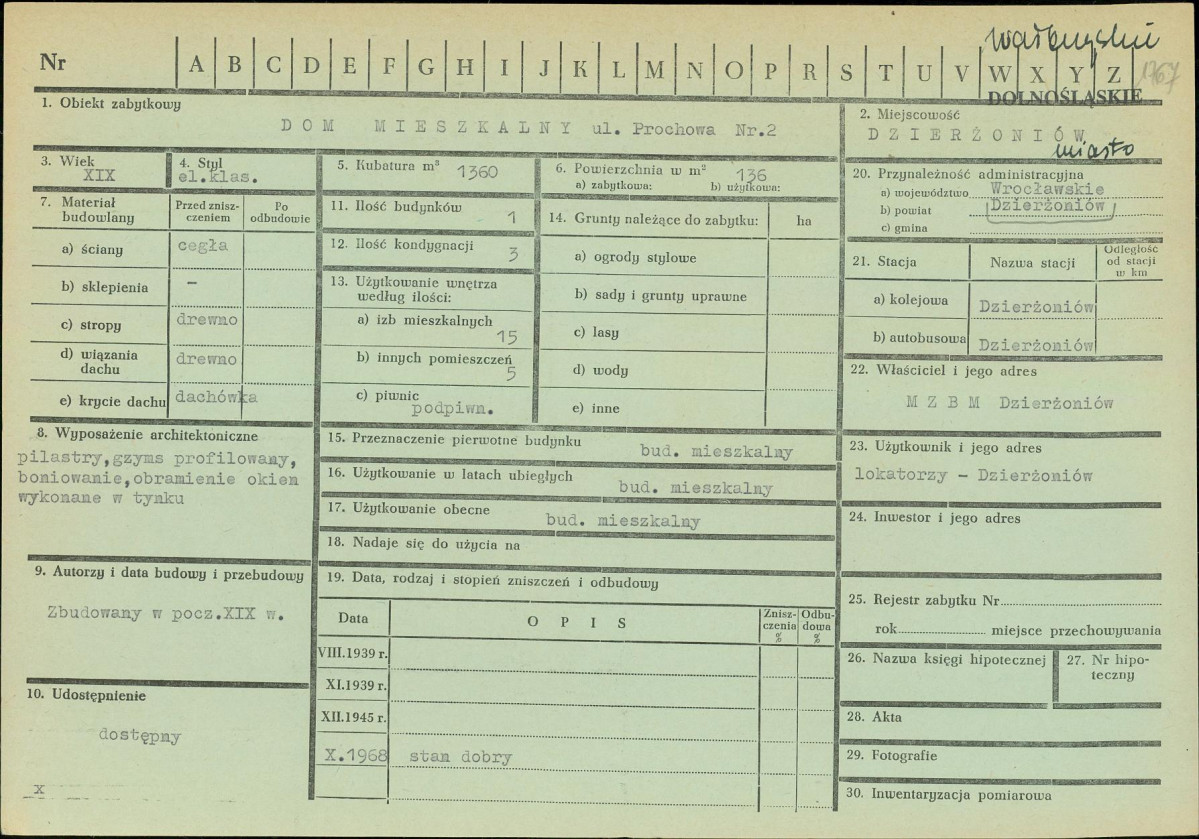 wałbrzyskie
Nr A B C D E F G H I J K L M N O P R S T U V W X Y Z 1767
DOLNOŚLĄSKIE
1. Obiekt zabytkowy
DOM MIESZKALNY ul. Prochowa Nr.2
2. Miejscowość
DZIERŻONIÓW
miasto
3. Wiek
XIX
4. Styl
el.klas.
5. Kubatura m³ 1360
6. Powierzchnia w m² 136
a) zabytkowa: b) użytkowa:
20. Przynależność administracyjna
a) województwo Wrocławskie
b) powiat Dzierżoniów
c) gmina
7. Materiał budowlany
Przed zniszczeniem
Po odbudowie
a) ściany cegła
b) sklepienia –
c) stropy drewno
d) wiązania dachu drewno
e) krycie dachu dachówka
11. Ilość budynków 1
12. Ilość kondygnacji 3
13. Użytkowanie wnętrza
według ilości:
a) izb mieszkalnych 15
b) innych pomieszczeń 5
c) piwnic podpiwn.
14. Grunty należące do zabytku: ha
a) ogrody stylowe
b) sady i grunty uprawne
c) lasy
d) wody
e) inne
21. Stacja Nazwa stacji Odległość od stacji w km
a) kolejowa Dzierżoniów
b) autobusowa Dzierżoniów
22. Właściciel i jego adres
MZBM Dzierżoniów
8. Wyposażenie architektoniczne
pilastry,gzyms profilowany,
boniowanie,obramienie okien
wykonane w tynku
15. Przeznaczenie pierwotne budynku
bud. mieszkalny
16. Użytkowanie w latach ubiegłych
bud. mieszkalny
17. Użytkowanie obecne
bud. mieszkalny
18. Nadaje się do użycia na
23. Użytkownik i jego adres
lokatorzy – Dzierżoniów
24. Inwestor i jego adres
9. Autorzy i data budowy i przebudowy
Zbudowany w pocz.XIX w.
19. Data, rodzaj i stopień zniszczeń i odbudowy
Data OPIS Zniszczenia % Odbudowa %
VIII.1939 r.
XI.1939 r.
XII.1945 r.
X.1968 stan dobry
25. Rejestr zabytku Nr
rok miejsce przechowywania
26. Nazwa księgi hipotecznej
27. Nr hipoteczny
10. Udostępnienie
dostępny
x
28. Akta
29. Fotografie
30. Inwentaryzacja pomiarowa